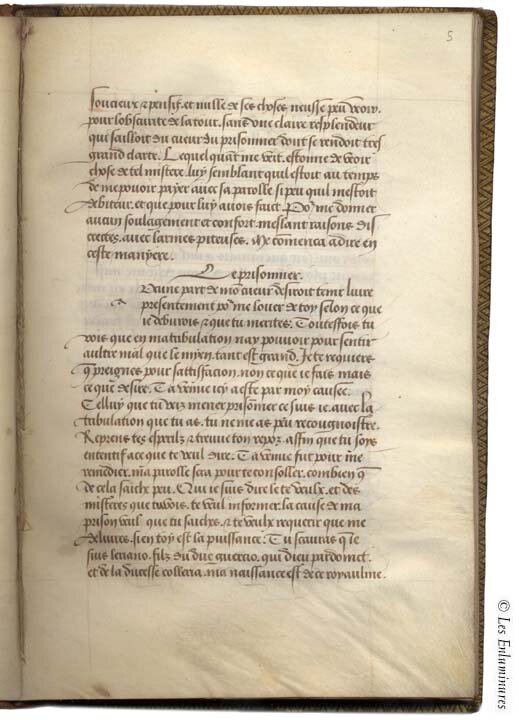 5
soucieux & pensif. et nulle de ses choses neusse peu veoir.
pour lobscurite de la tour. sans une claire resplendeur
qui sailloit du cueur du prisonnier dont se rendoit tres
grand clarte. Lequel quant me veit. estonne de veoir
chose de tel mistere. luy semblant quil estoit au temps
de me povoir payer avec sa parolle si peu quil mestoit
debiteur. et que pour luy avois faict. Por me donner
aucun soulagement et confort. meslant raisons dis
crectes. avec larmes piteuses. Me comenca a dire en
ceste manyere.
Le prisonnier.
Daune part de mon cueur desiroit tenir livre
presentement por me louer de toy selon ce que
ie debvrois & que tu merites. Touteffois tu
vois que en ma tribulation nay pouvoir pour sentir
aultre mal que le myen. tant est grand. Je te requiers
q preignes pour sattisfacion. non ce que ie fais mais
ce que desire. Ta venue icy a este par moy causee.
Celluy que tu veiz mener prisonnier ce suis ie. avec la
tribulation que tu as. tu ne me as peu recougnoistre.
Reprens tes esperilz & treuve ton repoz. affin que tu soys
ententif a ce que te veul dire. Ta venue fut pour me
remedier. ma parolle sera pour te consoller. combien q
de cela saiche peu. Qui ie suis dire le te veulx. et des
misteres que tu vois. te veul informer. la cause de ma
prison veul que tu saiches. & te veulx requerir que me
delivres. si en toy est la puissance. Tu scauras q ie
suis leriano. filz du duc guercio. qui dieu pardonnet.
et de la ducesse colleria. ma naissance est de ce royaulme.
© Les Enluminures